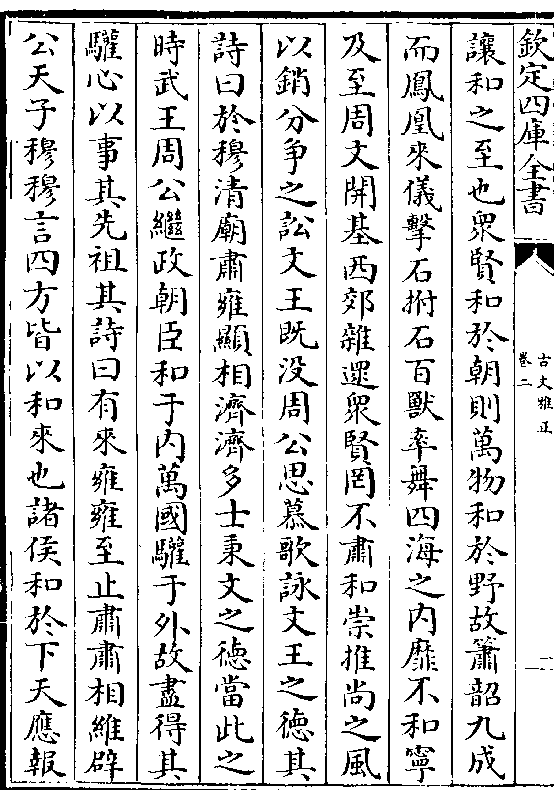 欽定四庫全書
古文雅正
卷二
讓和之至也衆賢和於朝則萬物和於野故簫韶九成
而鳳凰來儀擊石拊石百獸率舞四海之内靡不和寧
及至周文開基西郊雜遝衆賢罔不肅和崇推尚之風
以銷分争之訟文王既没周公思慕歌詠文王之德其
詩曰於穆清廟肅雍顯相濟濟多士秉文之德當此之
時武王周公繼政朝臣和于内萬國驩于外故盡得其
驩心以事其先祖其詩曰有來雍雍至止肅肅相維辟
公天子穆穆言四方皆以和來也諸侯和於下天應報